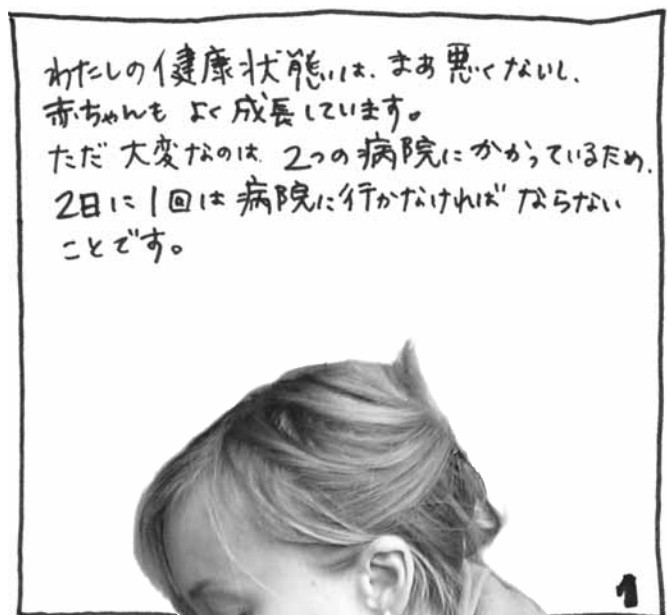 わたしの健康状態は、まあ悪くないし、
赤ちゃんも よく成長しています。
ただ 大変なのは、2つの病院にかかっているため、
2日に1回は病院に行かなければ ならない
ことです。
1